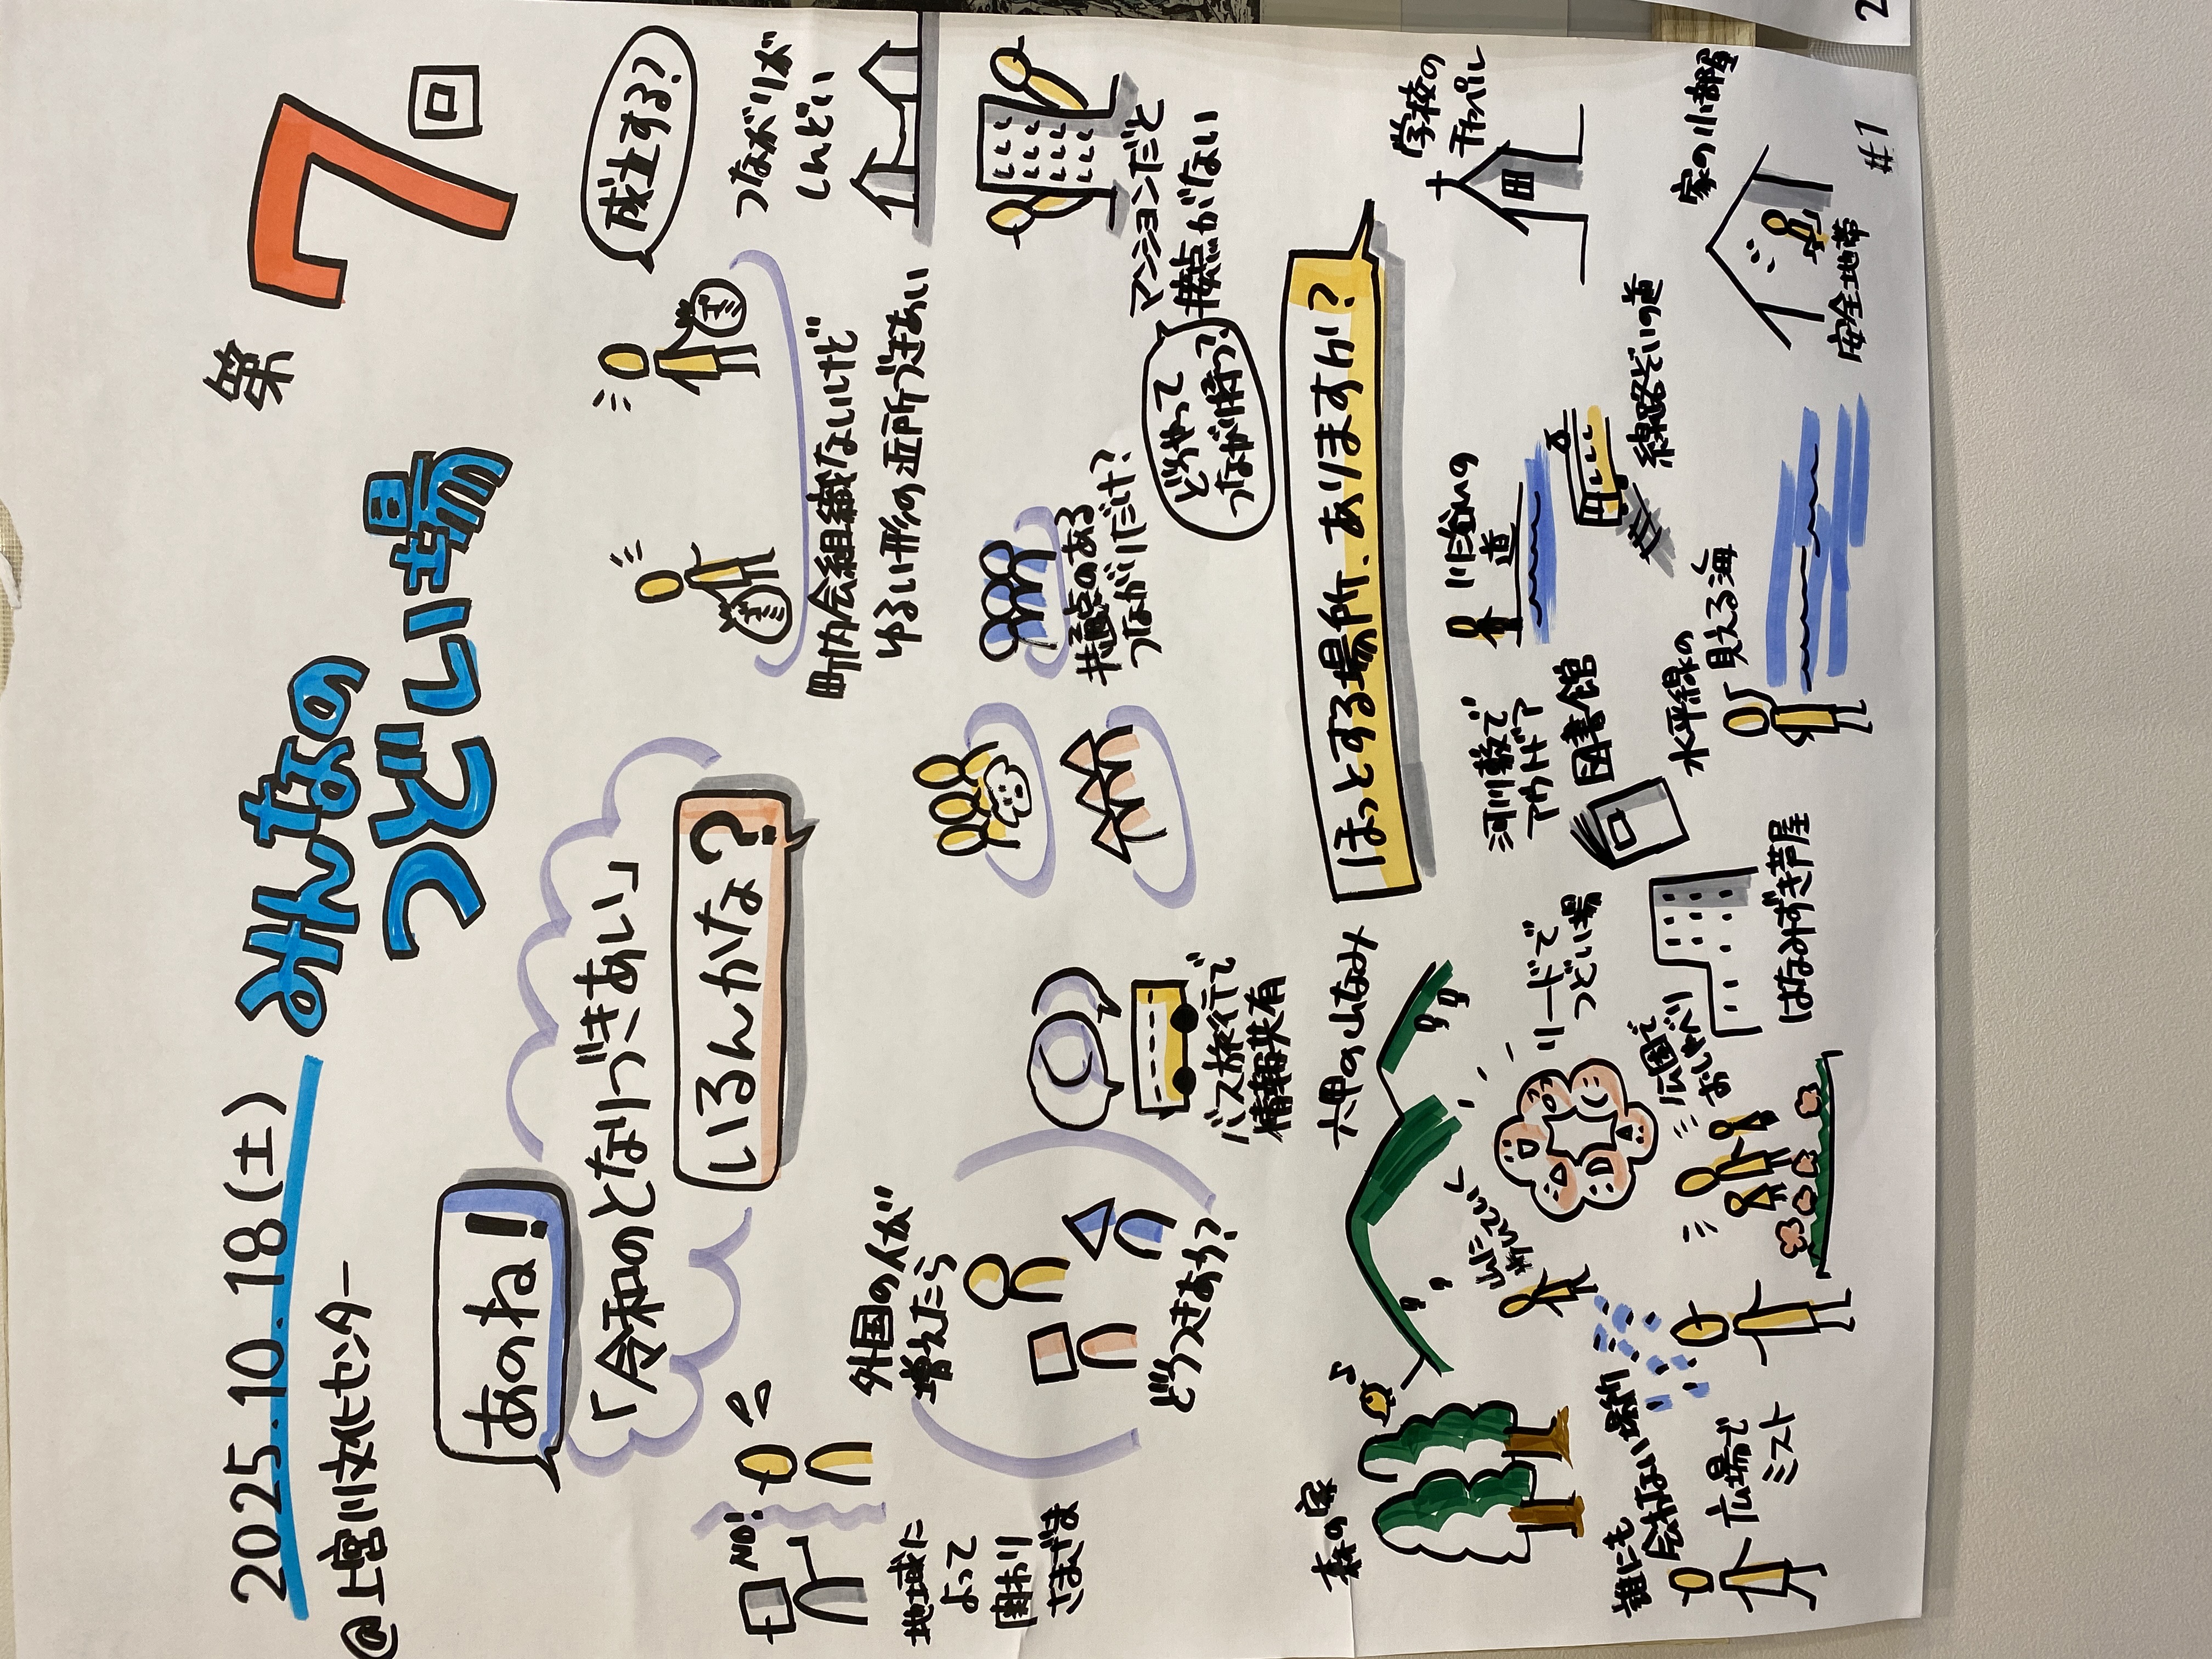 2025.10.18(土)
@上宮川文化センター
みんなの
つどい場
第7回
あのね!
「令和のとなりづきあい」
いるんかな?
NO!
地域に
よって
関わり
さまざま
外国の人が
増えたら
どうつきあう?
バス旅行で
情報共有
成立する?
町内会組織ないけど
ゆるい形の近所づきあい
つながりが
しんどい
共通点のある
つながりだけ?
マンションだと
接点がない
どうやって
つながり持つ?
ほっとする場所、ありますか?
森の家
六甲の山なみ
山に
リードで
つどい場
誰にも
会わない場所
広場で
ミスト
公園で
おしゃべり
はなみずき芦屋
河川敷で
アウトドア
図書館
水平線の
見える海
川沿いの
道
線路ぞいの道
学校の
チャペル
家の小部屋
安全地帯
#1
2